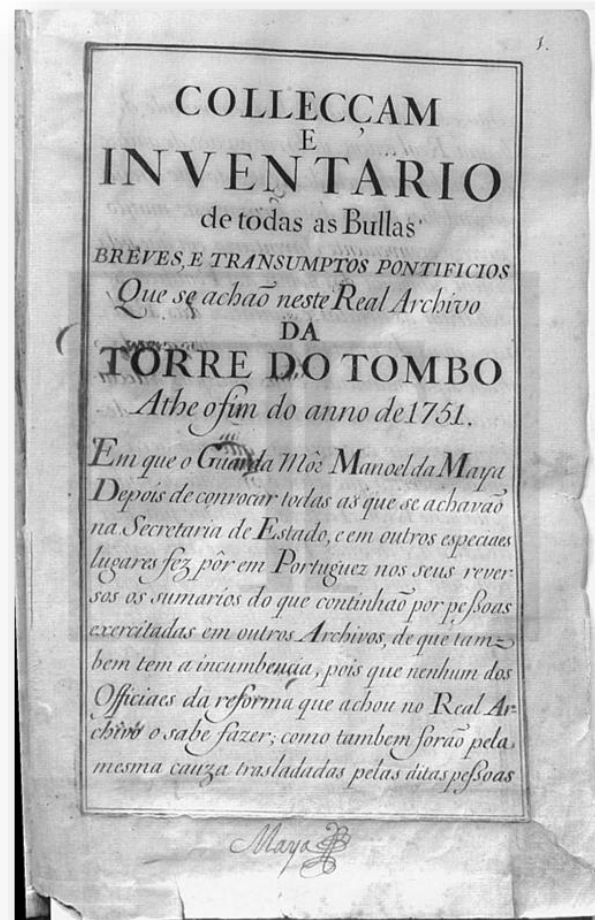 1.
COLLECÇAM
E
INVENTARIO
de todas as Bullas
BREVES, E TRANSUMPTOS PONTIFICIOS
Que se achaõ neste Real Archivo
DA
TORRE DO TOMBO
Athe o fim do anno de 1751.
Em que o Guarda Mór Manoel da Maya
Depois de convocar todas as que se achavaõ
na Secretaria de Estado, e em outros especiaes
lugares fez pôr em Portuguez nos seus rever-
sos os sumarios do que continhaõ por peſsoas
exercitadas em outros Archivos, de que tam=
bem tem a incumbencia, pois que nenhum dos
Officiaes da reforma que achou no Real Ar-
chivo o sabe fazer; como tambem foraõ pela
mesma cauza trasladadas pelas ditas peſsoas
Maya